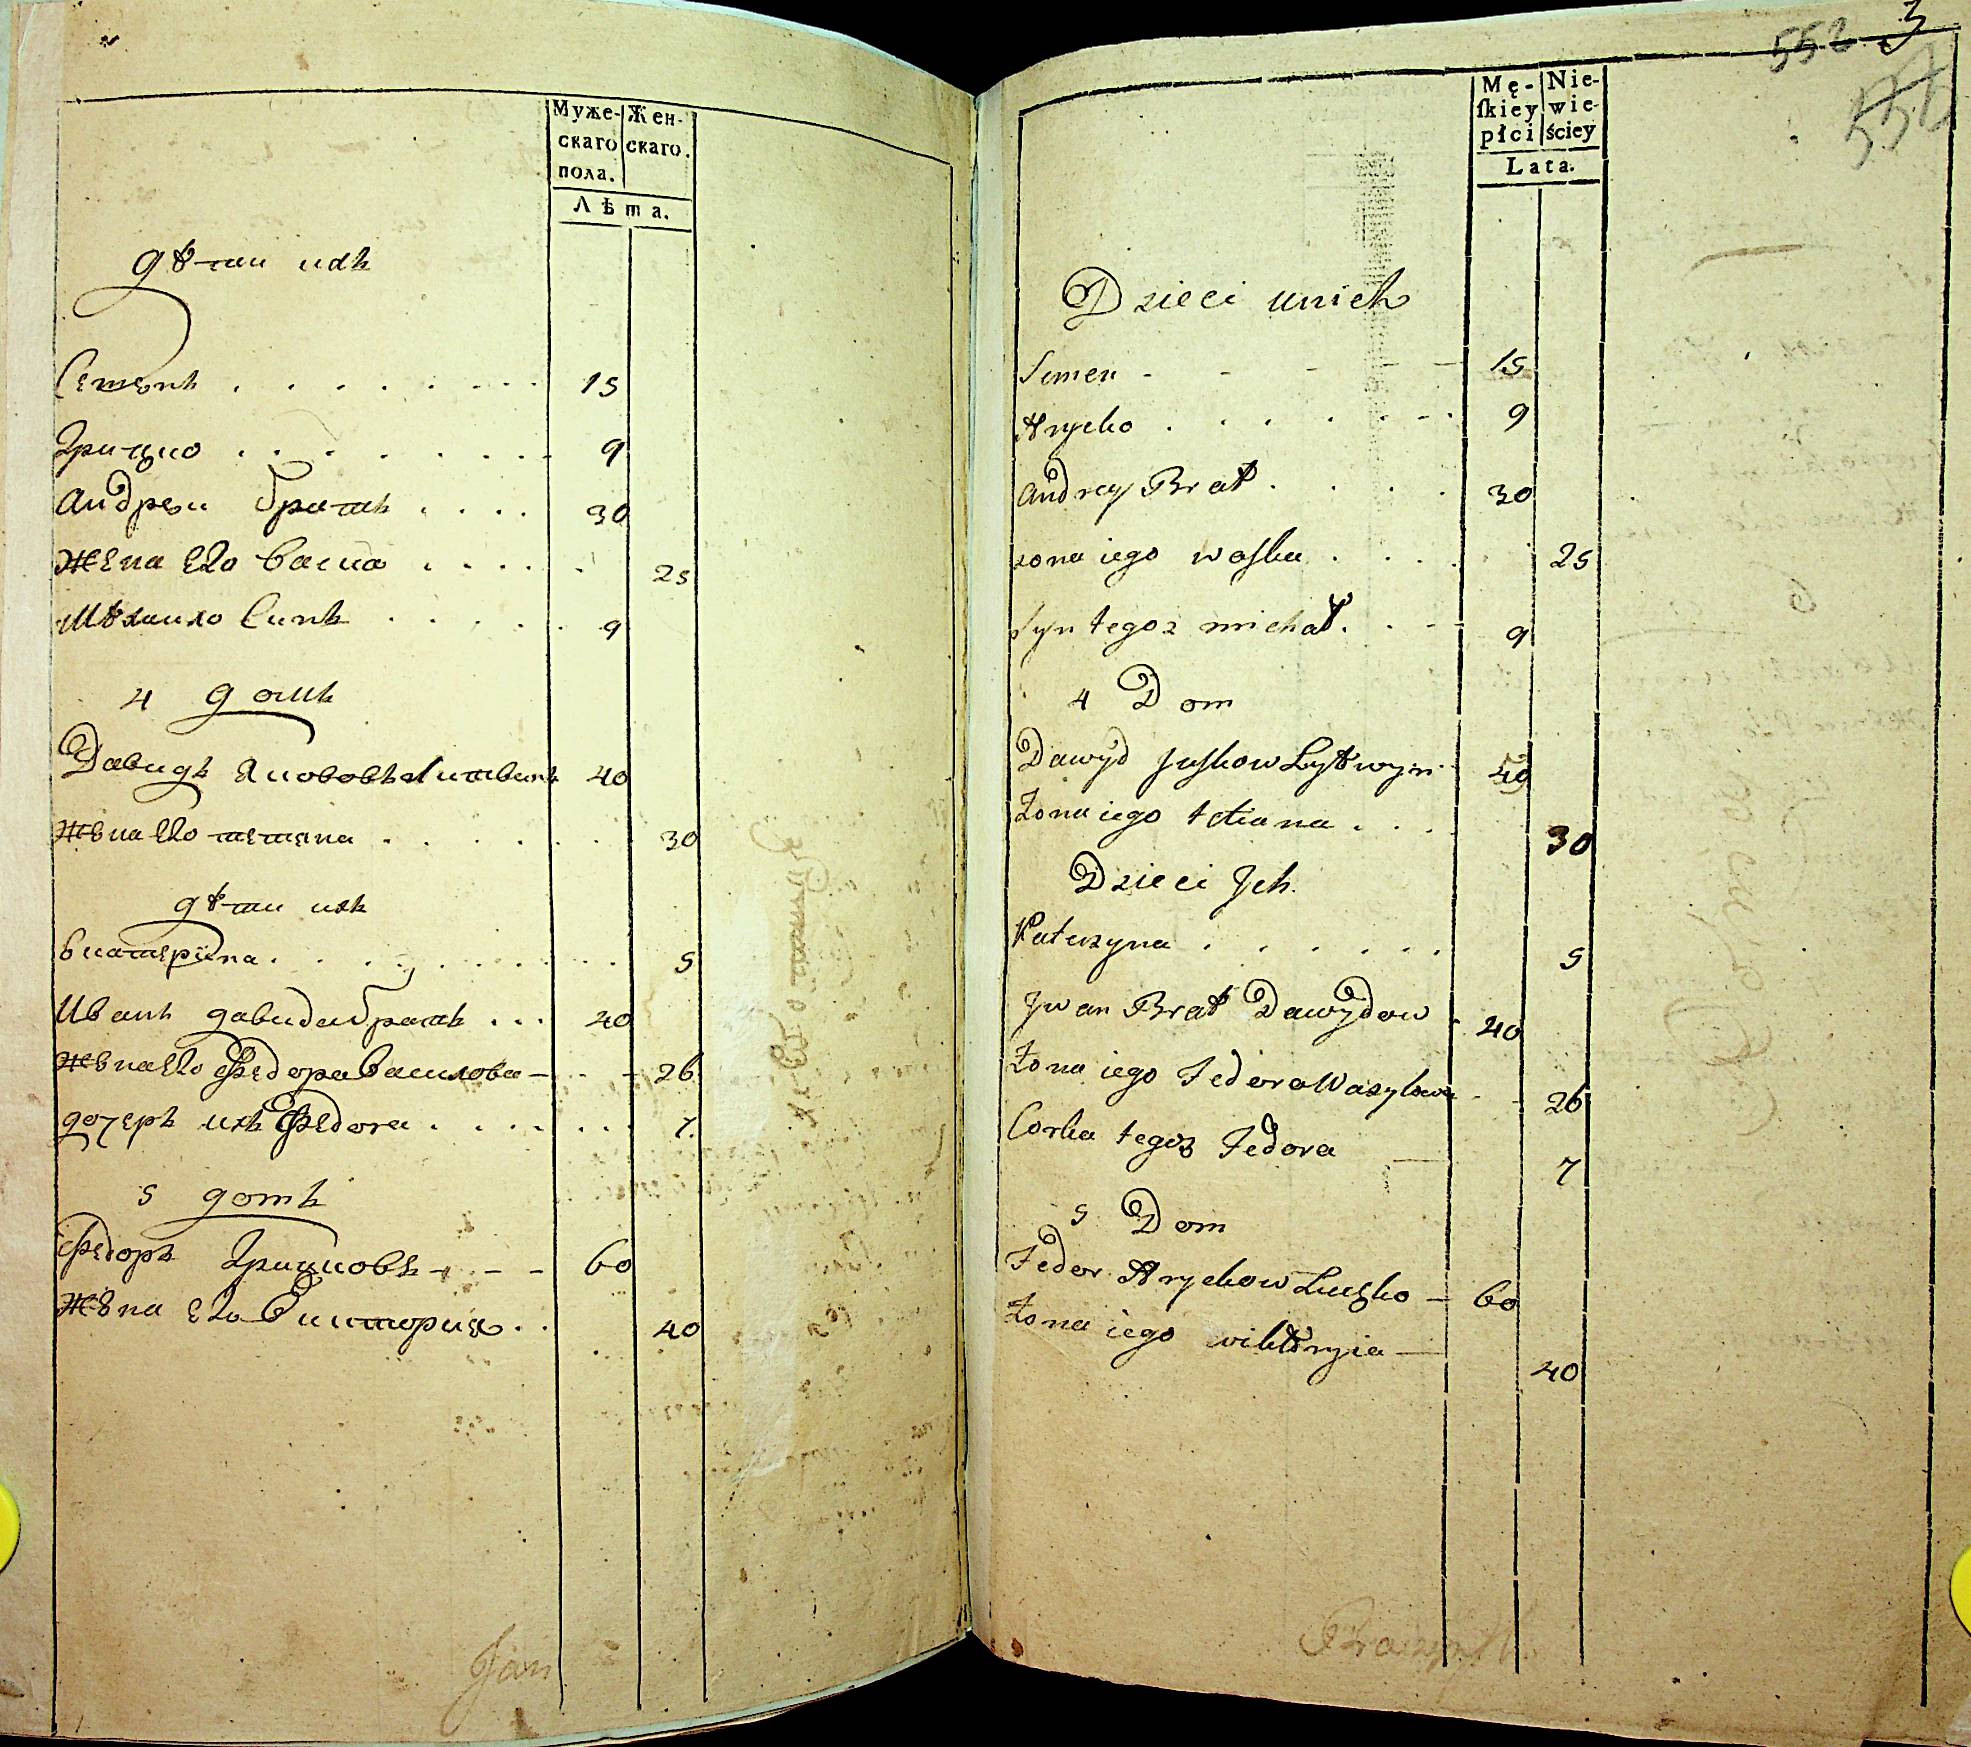 Муже- Жен-
скаго скаго.
пола.
Лѣта.
дѣти ихъ
Семенъ . . . . . . . . 15
Грицко . . . . . . . . 9
Андреи братъ . . . . 30
жена его Васка . . . . . 25
Михаило синъ . . . . . 9
4 домъ
Давидъ Якововъ Литвинъ 40
жена его тетяна . . . . . . 30
дѣти ихъ
Екатерина . . . . . . . . 5
Иванъ давида братъ . . . 40
жена его Федора Василова - - 26
дочеръ ихъ Федора . . . . . . 7
5 домъ
Федоръ Грицковъ - - - 60
жена его Виктория . . 40
Jan
552 3
Mę- Nie-
skiey wie-
płci ściey
Lata.
Dzieci unich
Semen - - - - - 15
Hrycko . . . . . . - . 9
Andrey Brat . . . . 30
zona iego waska . . . . . 25
Syn tegoz michał . . - 9
4 Dom
Dawyd Juskow Lytwyn 40
Żona iego tetiana . . . 30
Dzieci Jch.
Katerzyna . . . . . . 5
Jwan Brat Dawydow . 40
Żona iego Fedora Wasylowa - - 26
Corka tegoz Fedora 7
5 Dom
Fedor Hryckow Luczko - 60
Żona iego wiktoryia — 40